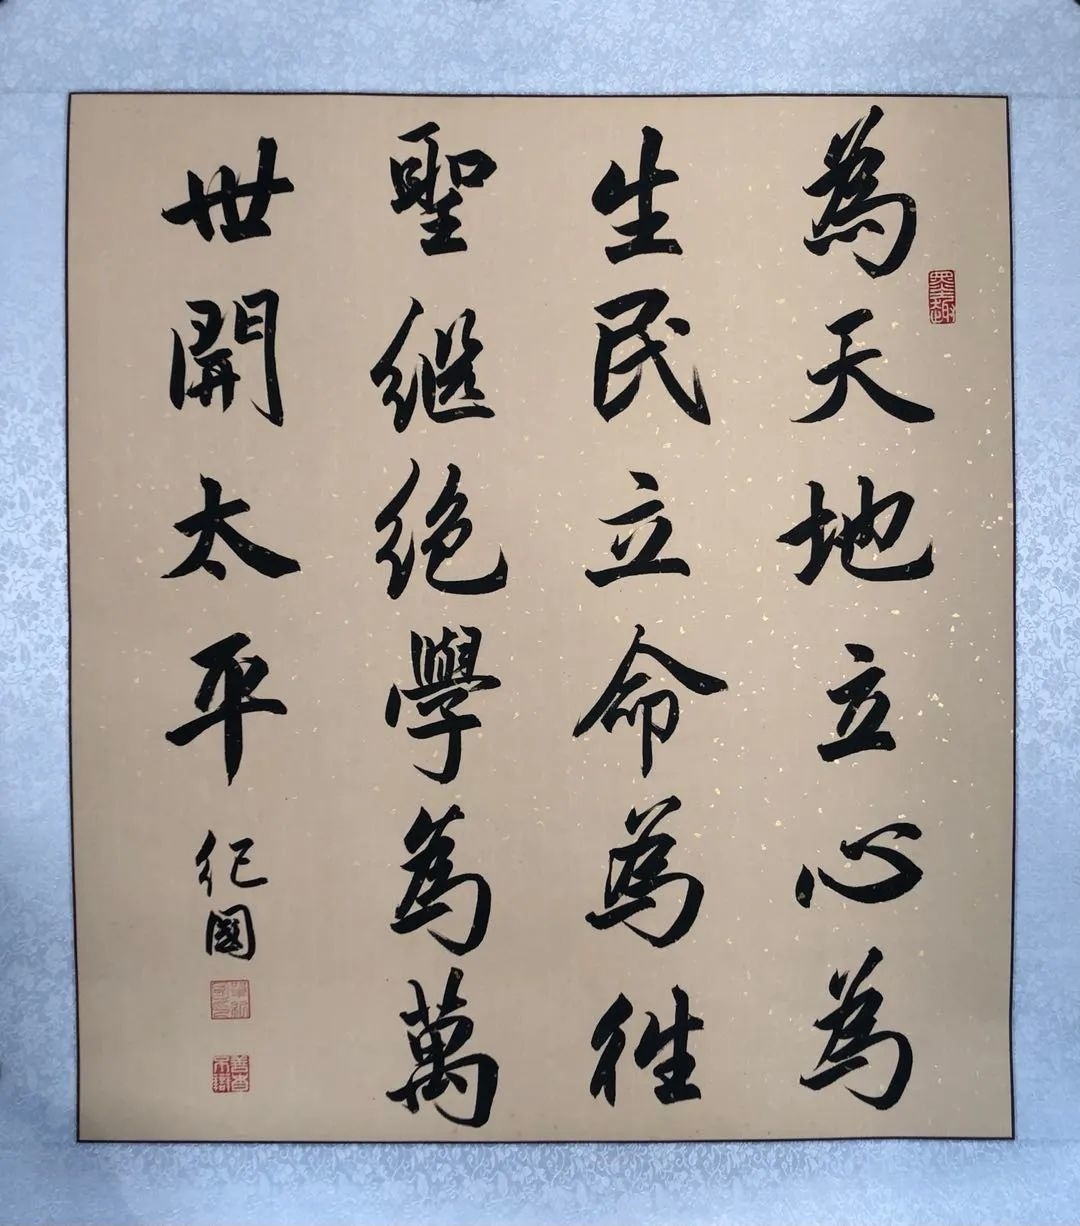 為天地立心為
生民立命為往
聖繼绝學為萬
世開太平
纪國